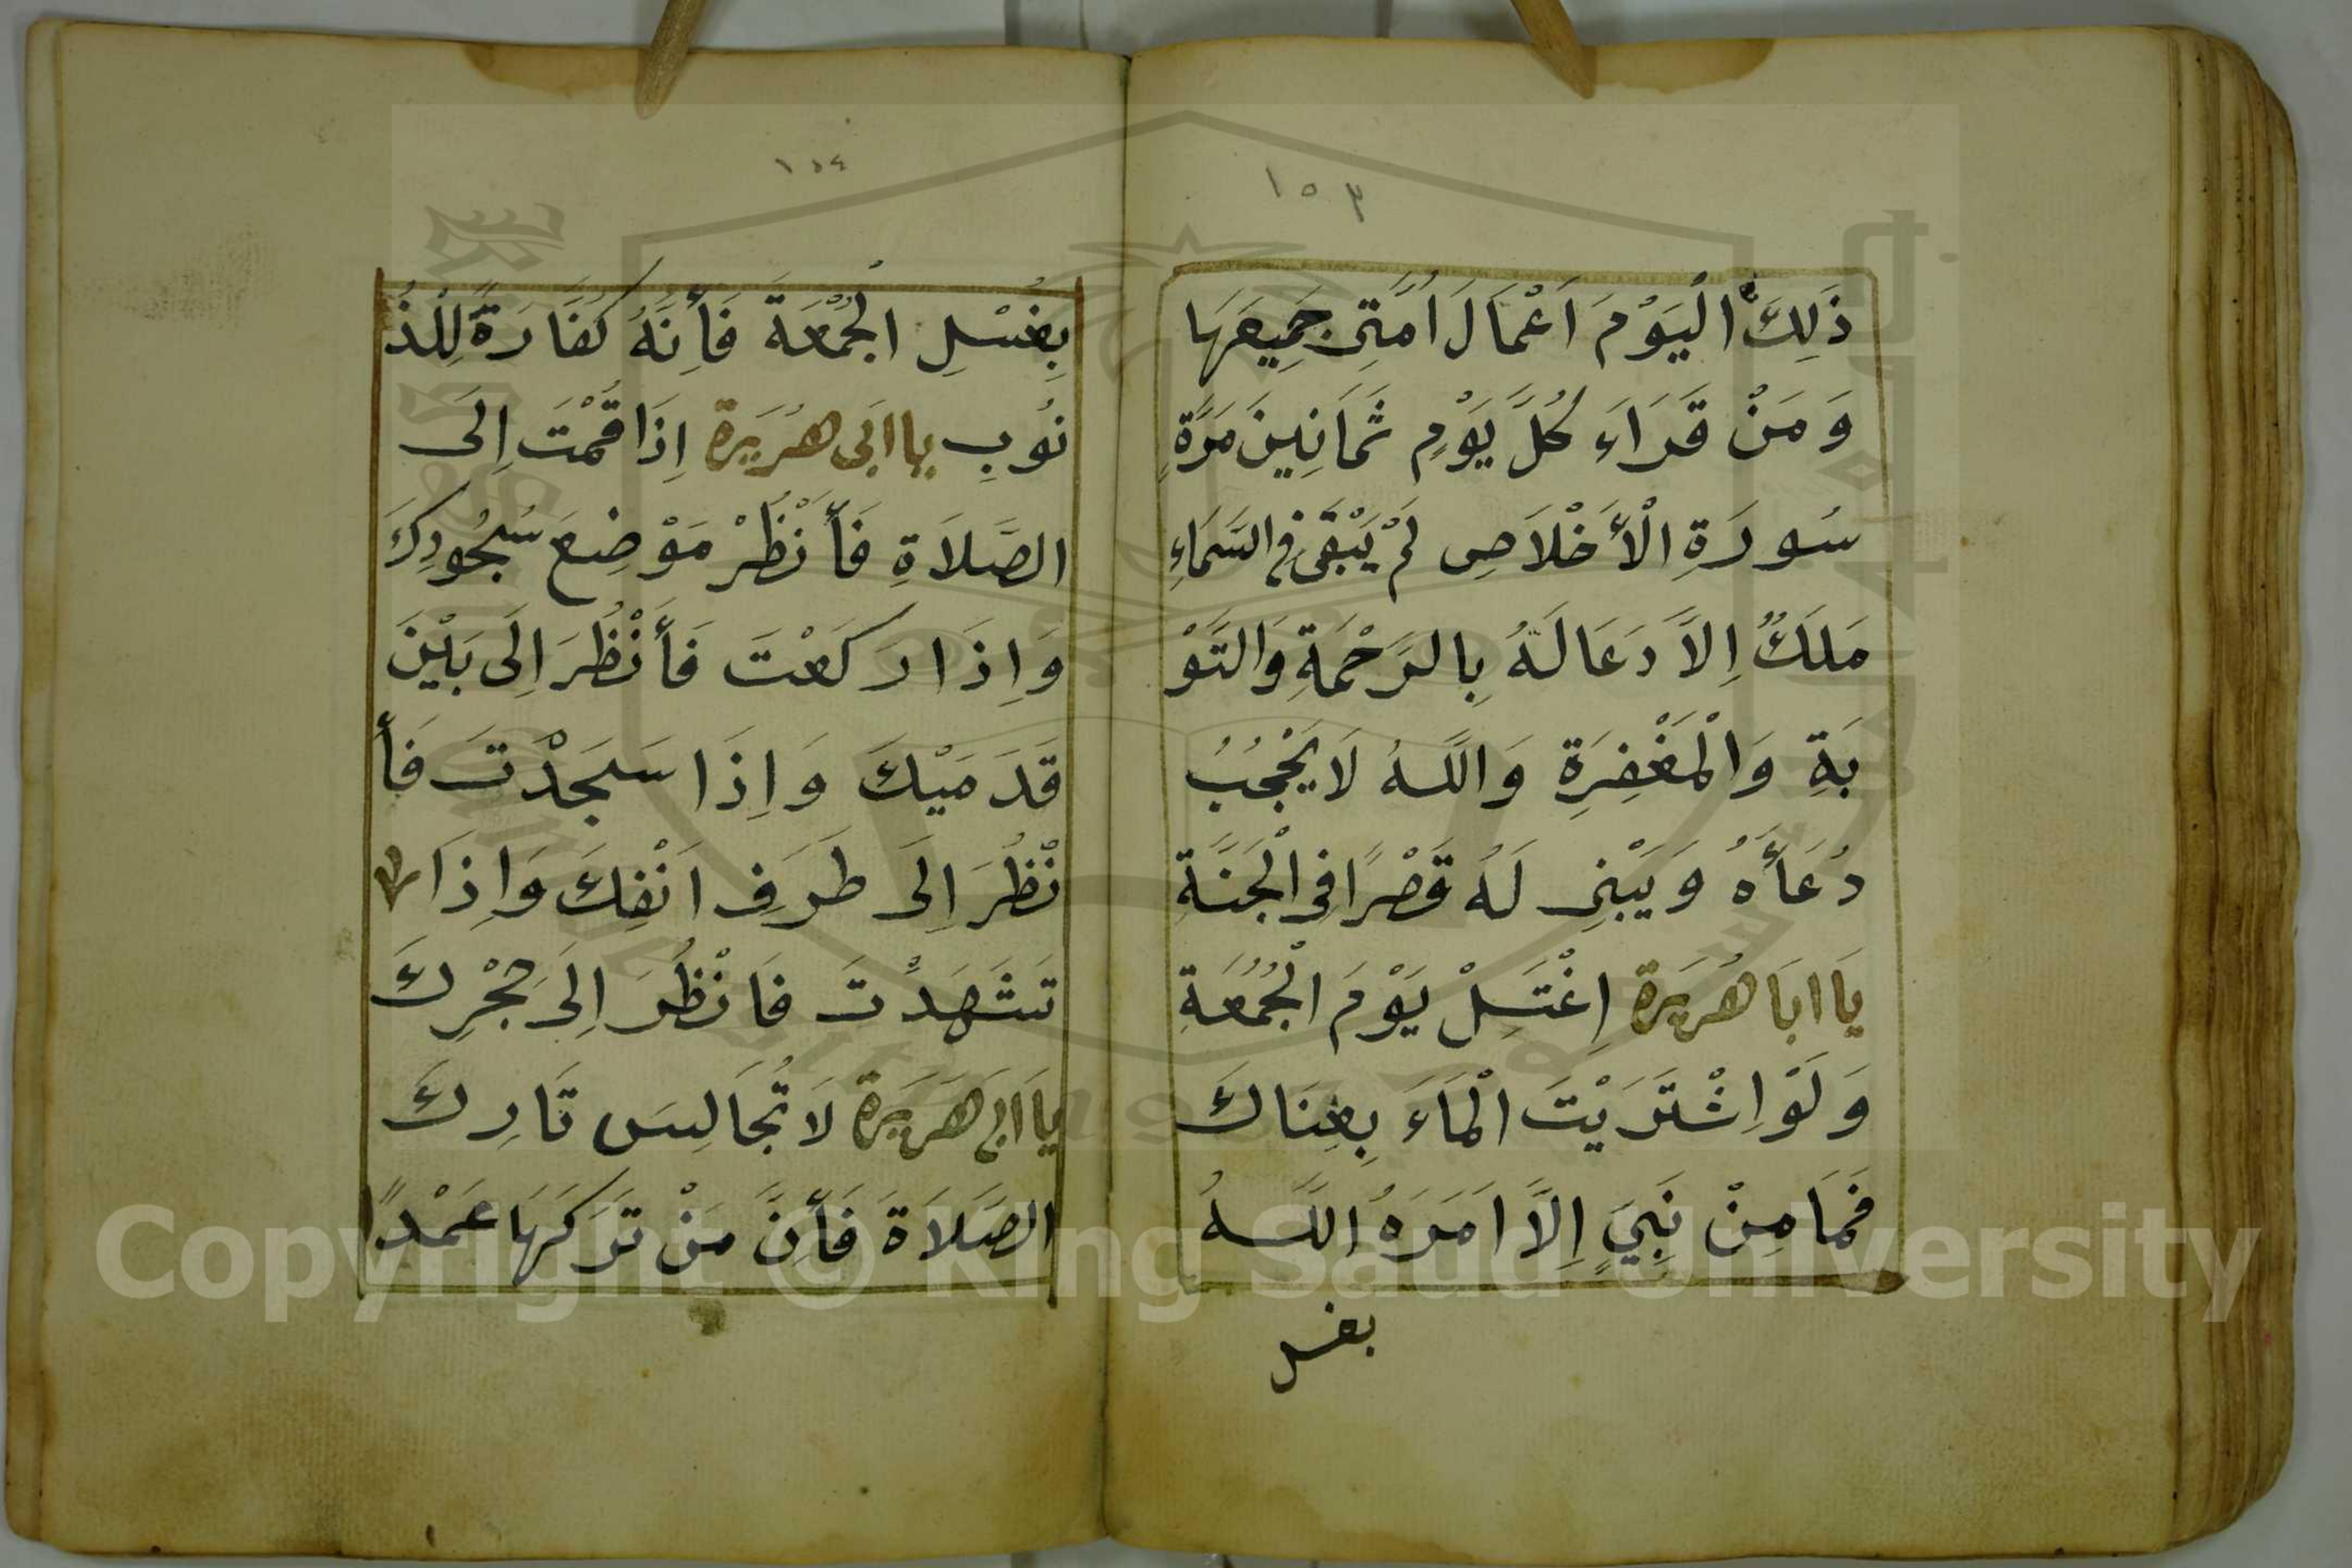 ١٥٣
ذَلِكَ الْيَوْمَ اَعْمَالَ اُمَّتِى جَمِيعَهَا
وَمَنْ قَرَاءَ كُلَّ يَوْمٍ ثَمَانِينَ مَرَّةٍ
سُورَةِ الْأَخْلَاصِ لَمْ يَبْقَى فِى السَّمَاءِ
مَلَكٌ اِلَّا دَعَا لَهُ بِالرَّحْمَةِ وَالتَّوْ
بَةِ وَالْمَغْفِرَةِ وَاللَّهُ لَا يَحْجُبُ
دُعَأَهُ وَيَبْنِى لَهُ قَصْرًا فِى الْجَنَّةِ
يَا اَبَا هُرَيْرَة اِغْتَسِلْ يَوْمَ الْجُمُعَةِ
وَلَوْ اِشْتَرَيْتَ الْمَاءَ بِغِنَاكَ
فَمَا مِنْ نَبِيٍ اِلَّا اَمَرَهُ اللَّهُ
بغسل
١٥٤
بِغُسْلِ الْجُمْعَةَ فَأِنَّهُ كَفَّارَةً لِلْذُ
نُوبِ يا ابَى هُرَيْرَة اِذَا قُمْتَ اِلَى
الصَّلَاةِ فَأَنْظُرْ مَوْضِعَ سُجُودِكَ
وَاِذَا رَكَعْتَ فَأَنْظُرَ اِلَى بَيْنَ
قَدَمَيْكَ وَاِذَا سَجَدْتَ فَأَ
نْظُرَ اِلَى طَرَفِ اَنْفِكَ وَاِذَا
تَشَهَدْتَ فَانْظُرَ اِلَى حِجْرِكَ
يا اَبَى هَرَيْرَة لَا تُجَالِسَ تَارِكَ
الصَّلَاةَ فَأِنَّ مَنْ تَرَكَهَا عَمْدًا
Copyright © King Saud University